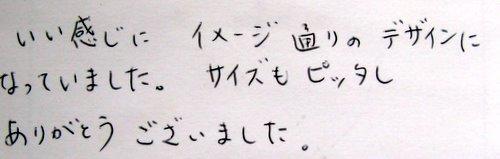 いい感じに イメージ通りの デザインに
なっていました。 サイズも ピッタし
ありがとう ございました。